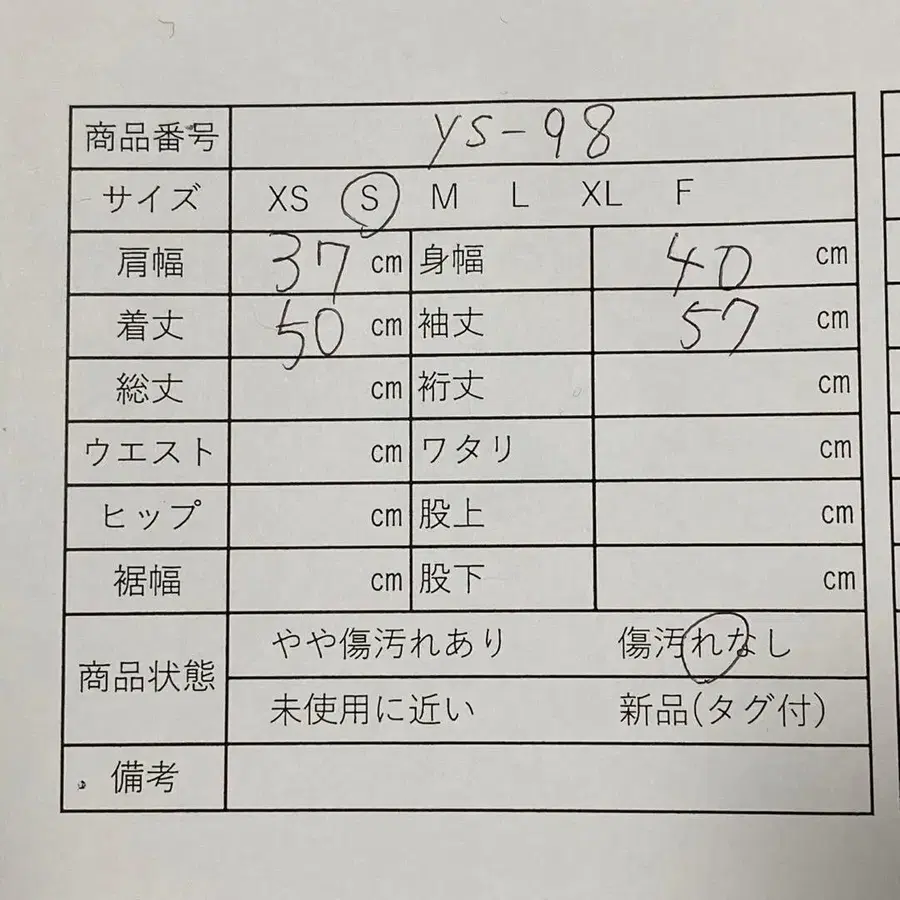 商品番号 ys-98
サイズ XS S M L XL F
肩幅 37 cm 身幅 40 cm
着丈 50 cm 袖丈 57 cm
総丈 cm 裄丈 cm
ウエスト cm ワタリ cm
ヒップ cm 股上 cm
裾幅 cm 股下 cm
商品状態 やや傷汚れあり 傷汚れなし
未使用に近い 新品(タグ付)
備考